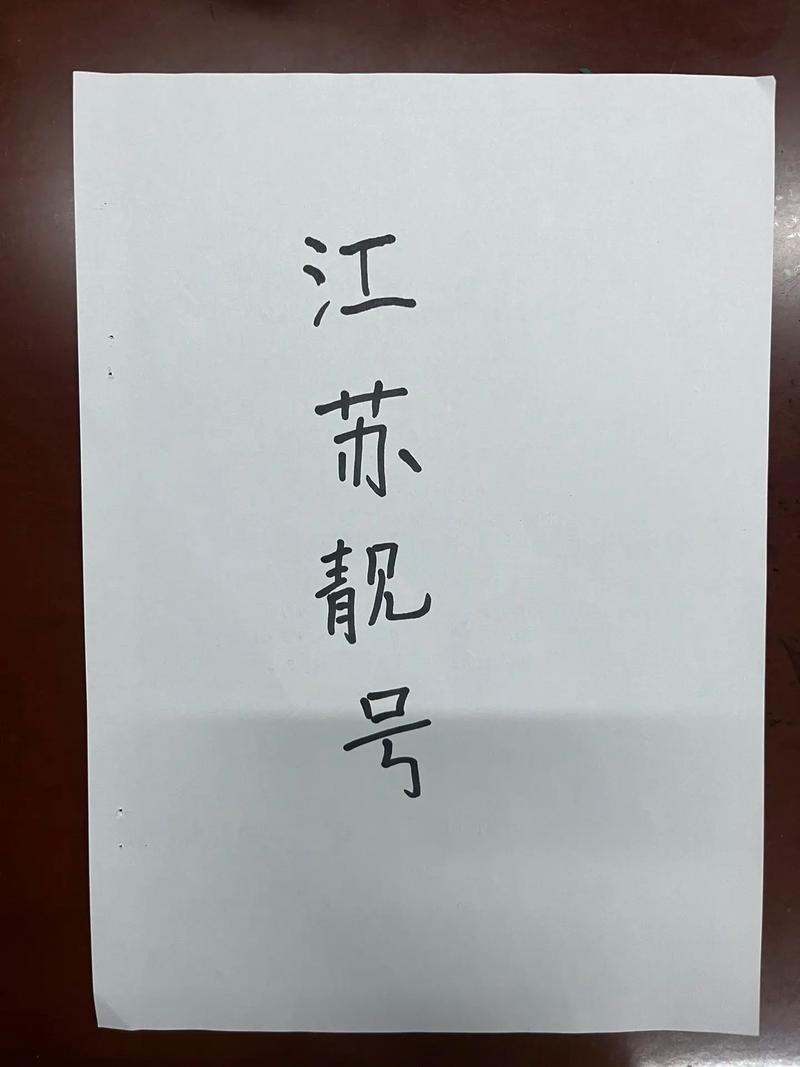 江苏靓号